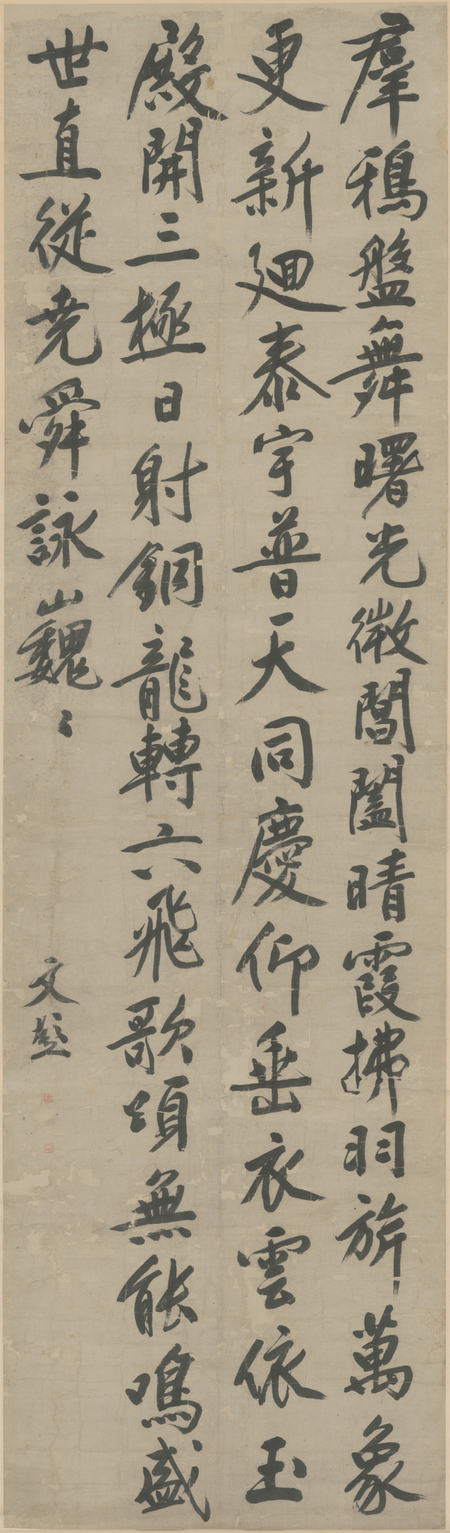 羣鴉盤舞曙光微閶闔晴霞拂羽旂萬象
更新廻泰宇普天同慶仰垂衣雲依玉
殿開三極日射銅龍轉六飛歌頌無能鳴盛
世直從堯舜詠巍〻
文彭